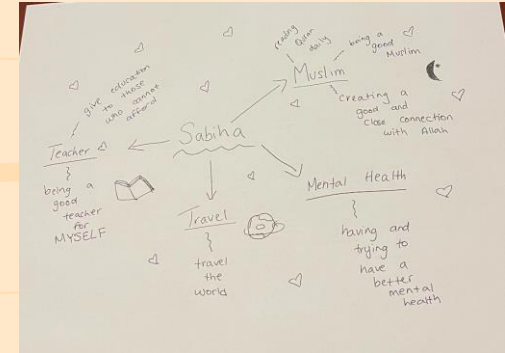 Sabiha
Muslim
reading
Quran
daily
being a
good
Muslim
creating a
good and
close connection
with Allah
Teacher
give education
to those
who cannot
afford
being a
good
teacher
for
MYSELF
Travel
travel
the
world
Mental Health
having and
trying to
have a
better
mental
health